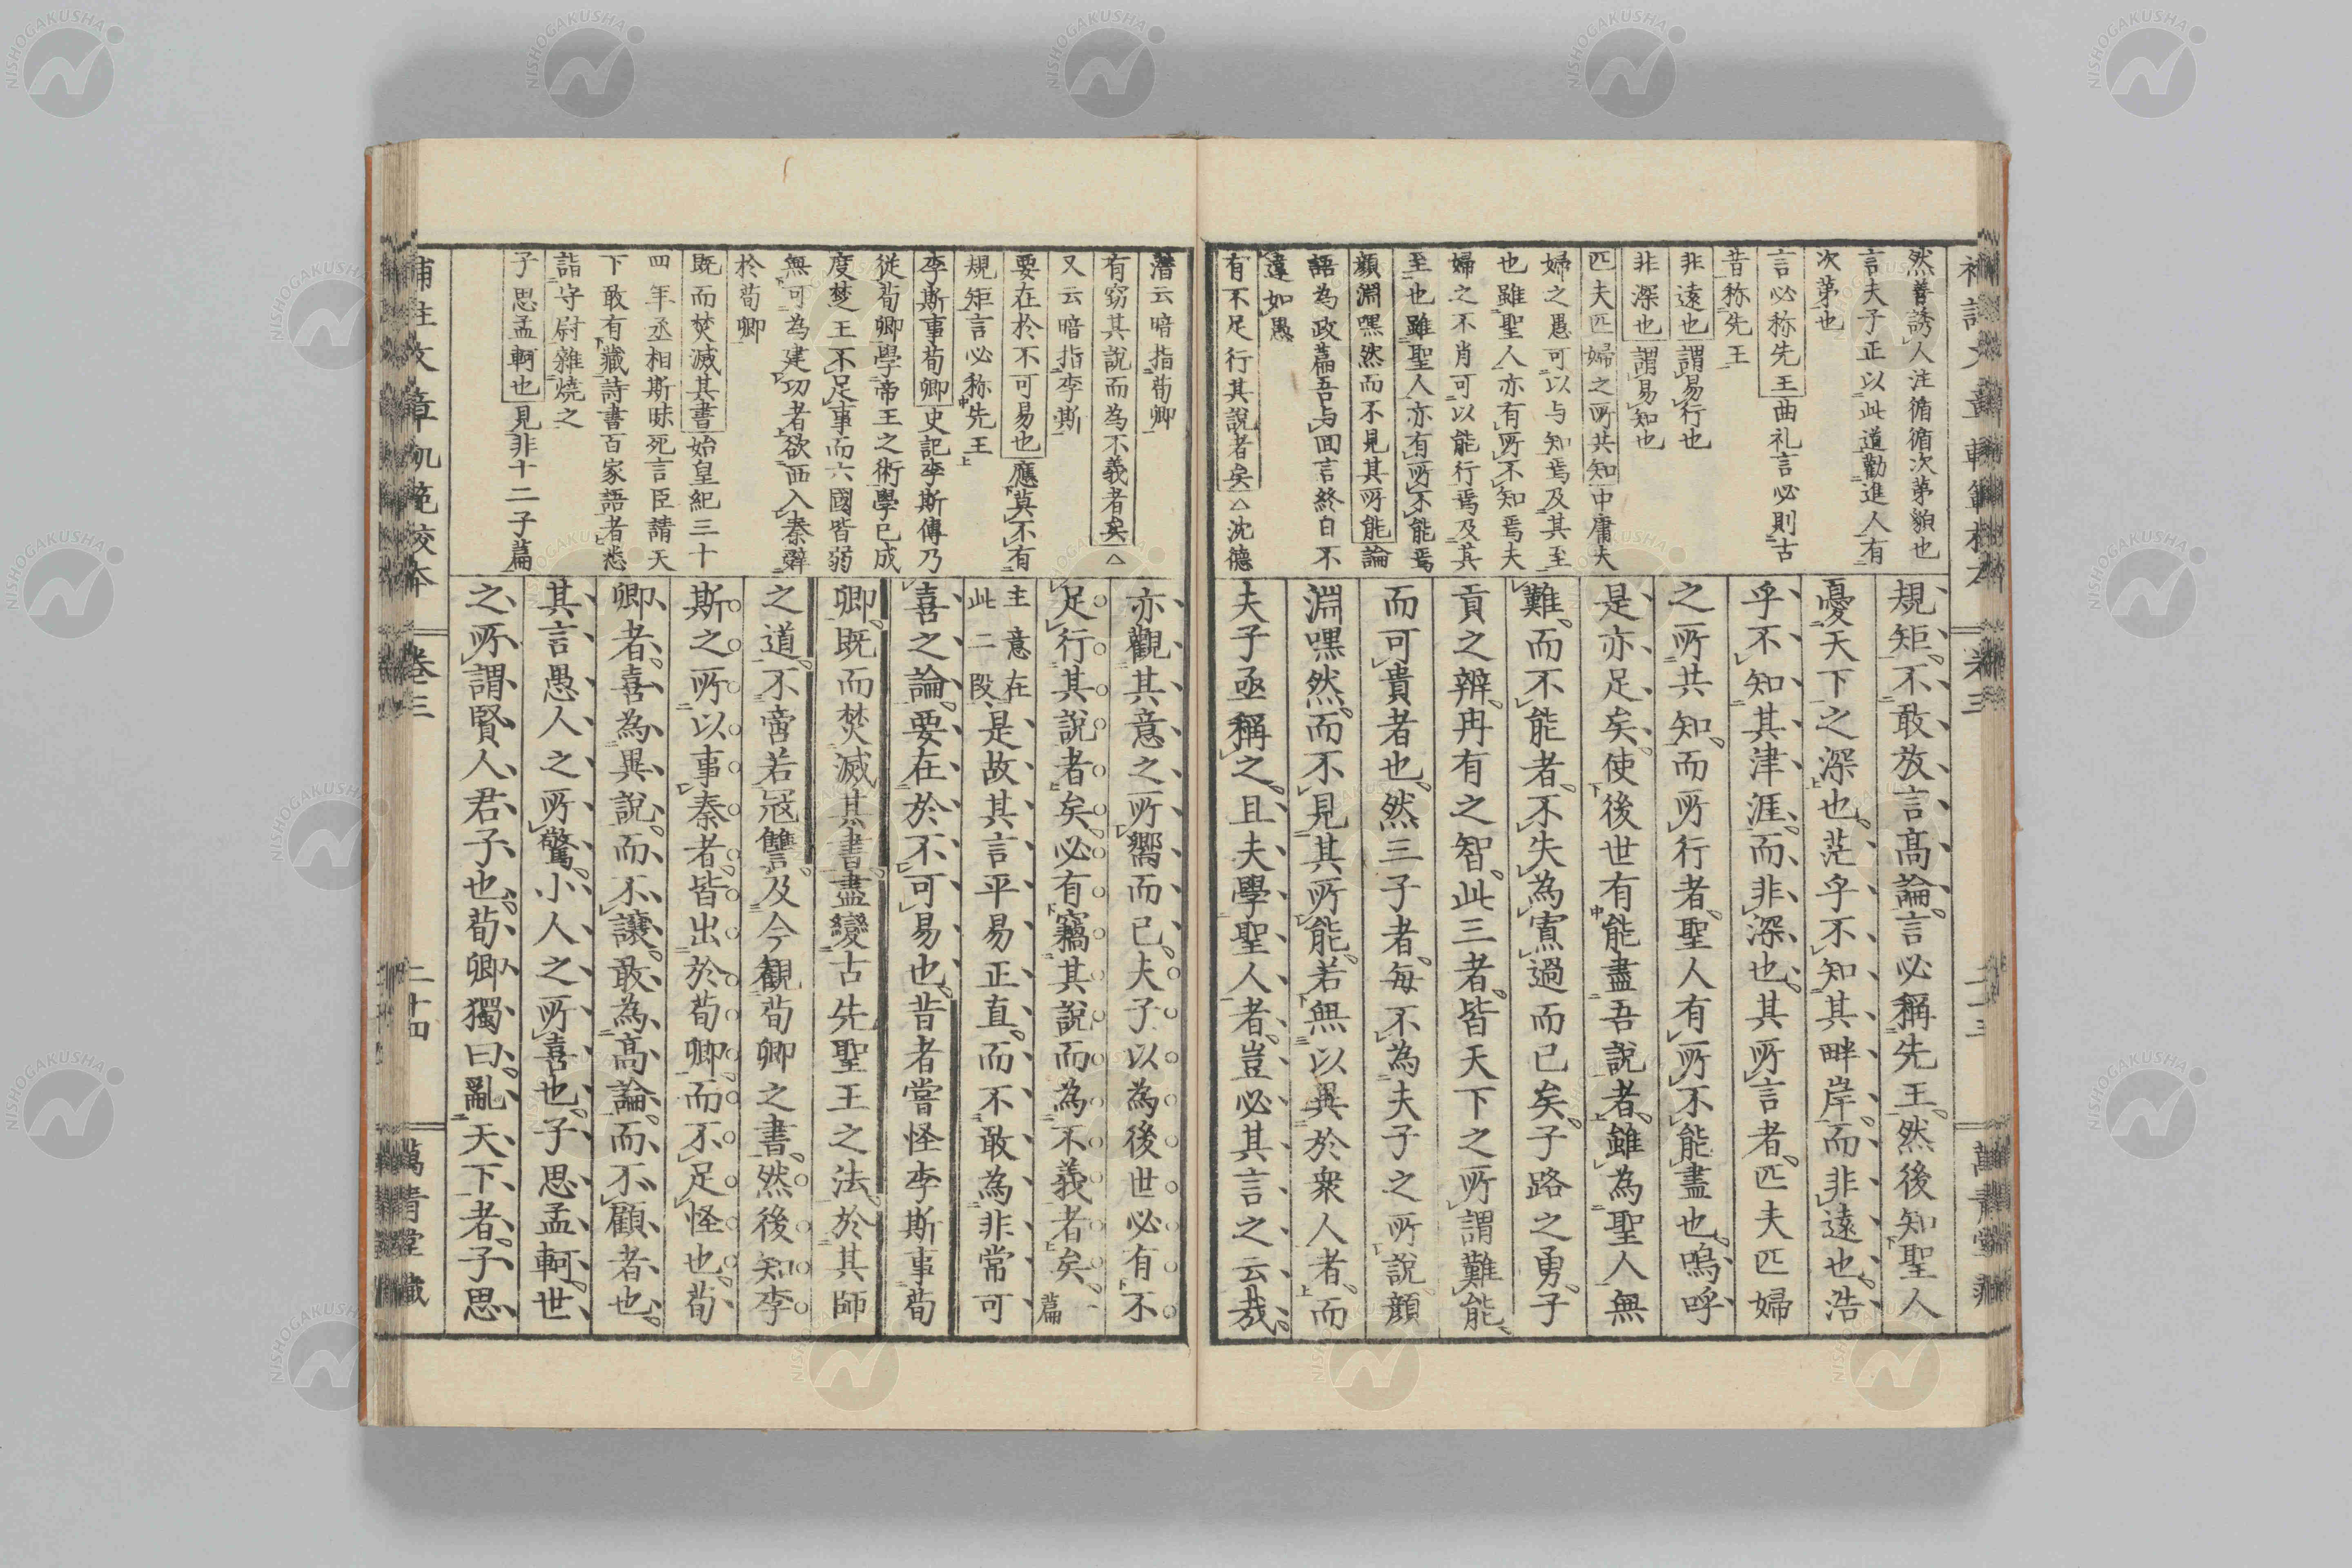 補註文章軌範校本
卷三
然善誘人注循循次苐貌也
言夫子正以此道勸進人有
次苐也
言必称先王曲礼言必則古
昔称先王
非遠也謂易行也
非深也謂易知也
匹夫匹婦之所共知中庸夫
婦之愚可以与知焉及其至
也雖聖人亦有所不知焉夫
婦之不肖可以能行焉及其
至也雖聖人亦有所不能焉
顔淵嘿然而不見其所能論
語為政篇吾与回言終日不
違如愚
有不足行其說者矣△沈德
規矩不敢放言高論言必稱先王然後知聖人
憂天下之深也茫乎不知其畔岸而非遠也浩
乎不知其津涯而非深也其所言者匹夫匹婦
之所共知而所行者聖人有所不能盡也嗚呼
是亦足矣使後世有能盡吾說者雖為聖人無
難而不能者不失為寡過而已矣子路之勇子
貢之辨冉有之智此三者皆天下之所謂難能
而可貴者也然三子者每不為夫子之所說顔
淵嘿然而不見其所能若無以異於衆人者而
夫子亟稱之且夫學聖人者豈必其言之云哉
潛云暗指荀卿
有窃其說而為不義者矣△
又云暗指李斯
要在於不可易也應莫不有
規矩言必称先王
李斯事荀卿史記李斯傳乃
從荀卿學帝王之術學已成
度楚王不足事而六國皆弱
無可為建功者欲西入秦辭
於荀卿
既而焚滅其書始皇紀三十
四年丞相斯昧死言臣請天
下敢有藏詩書百家語者悉
詣守尉雜燒之
子思孟軻也見非十二子篇
亦觀其意之所嚮而已夫子以為後世必有不
足行其說者矣必有竊其說而為不義者矣篇
主意在
此二段是故其言平易正直而不敢為非常可
喜之論要在於不可易也昔者嘗怪李斯事荀
卿既而焚滅其書盡變古先聖王之法於其師
之道不啻若冦讐及今觀荀卿之書然後知李
斯之所以事秦者皆出於荀卿而不足怪也荀
卿者喜為異說而不讓敢為高論而不顧者也
其言愚人之所驚小人之所喜也子思孟軻世
之所謂賢人君子也荀卿獨曰亂天下者子思
補註文章軌範校本
卷三
二十四
萬青堂藏